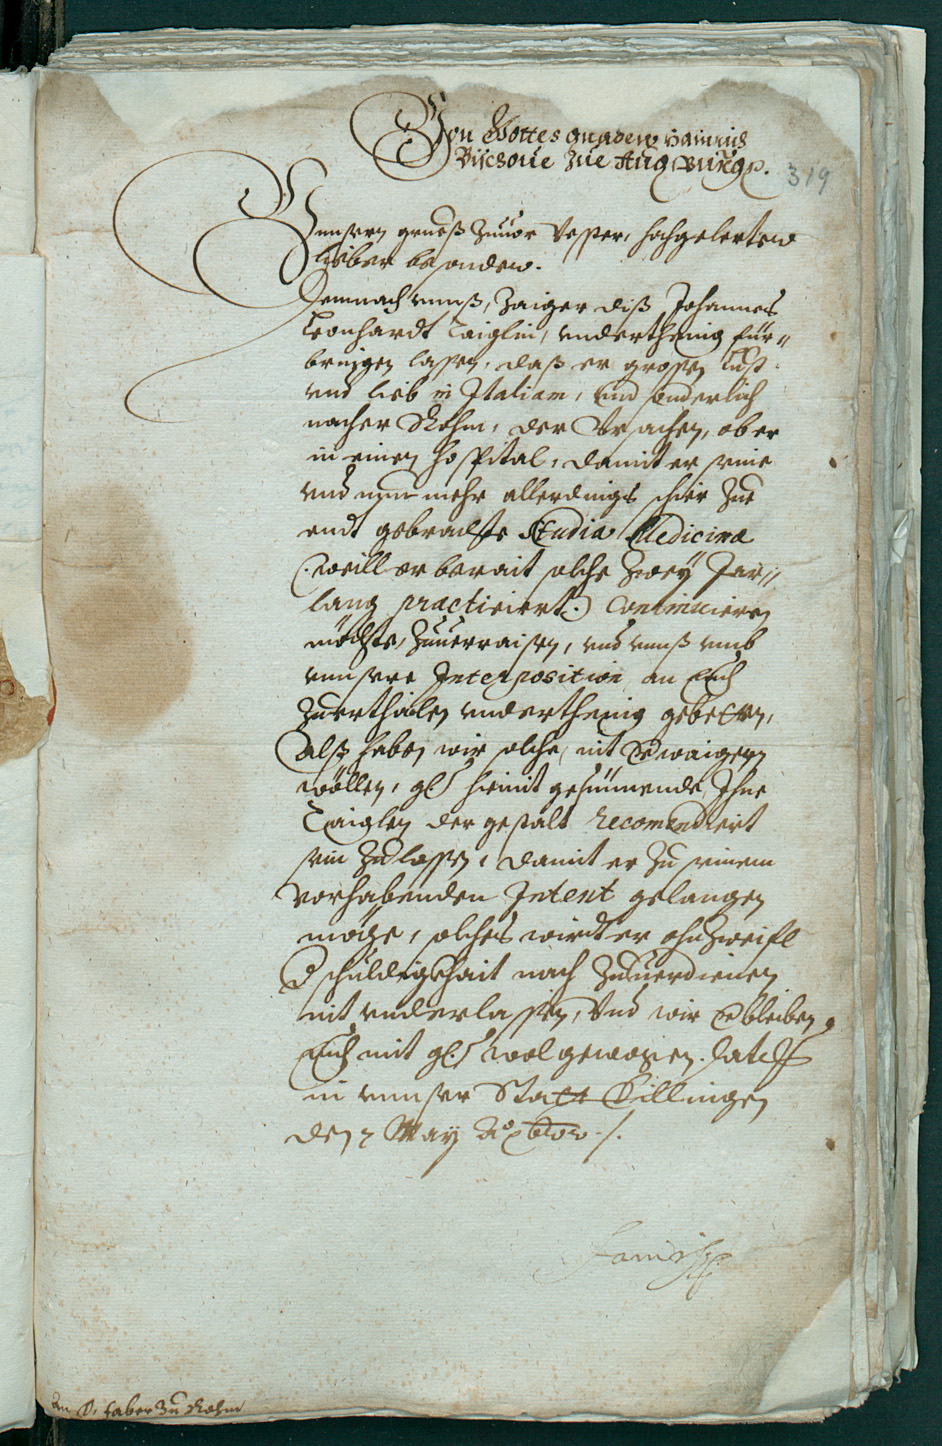 Von Gottes gnaden Hainrich
Bischoue zue Augspurg p.
319
Vnnsern grueß zuuor Vesster, hochgelerter
lieber besonder.
Demnach vnnß, Zaiger diß Johannes
Leonhardt Taiglin, vnderthenig für-
bringen lassen, daß er grossen lust
vnd lieb in Italiam, vnd sonderlich
nacher Rohm, der Vrsachen, ob er
in einen hospital, damit er seine
vnd nun mehr allerdings schier zue
endt gebrachte Studia Medicina
(: weill er berait solche zwey Jar
lang practiciert :) Continuieren
möchte, zuuerraisen, vnd vnnß vmb
vnnsere Interposition an Euch
zuerthailen vnderthenig gebetten,
Alß haben wir solche, nit verwaigern
wöllen, gl. hiemit gesinnende, Ihne
Taiglen der gestalt recomendiert
sein zulassen, damit er zu seinem
vorhabenden Intent gelangen
möge, solches wirdt er ohnzweifl
der schuldigkhait nach zuuerdienen
nit vnderlassen, Vnd wir verbleiben
Euch mit gl. wol gewogen. Datum
in vnnser Statt Dillingen
den 7 May Ao
Hainrich
An D. Faber zu Rohm